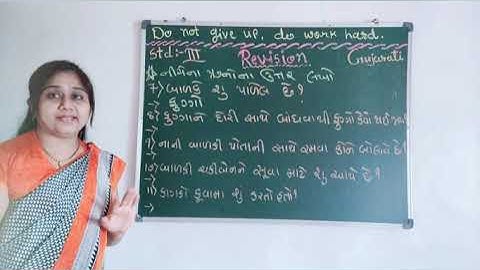 Do not give up, do work hard.
Std:- III Revision Gujarati
નીચેના પ્રશ્નોના ઉત્તર લખો
૭) બાળકે શું છે?
ફુગ્ગો
૮) ફુગ્ગાને દોરી સાથે બાંધવાથી ફુગ્ગો કેવો થઈ
→
૯) નાની બાળકી પોતાની સાથે રમવા કોને બોલાવે છે?
→
૧૦) બાળકી ચકીબેનને સૂવા માટે શું આપે છે?
→
૧૧) કાગડો કૂવામાં શું કરતો હતો?
→